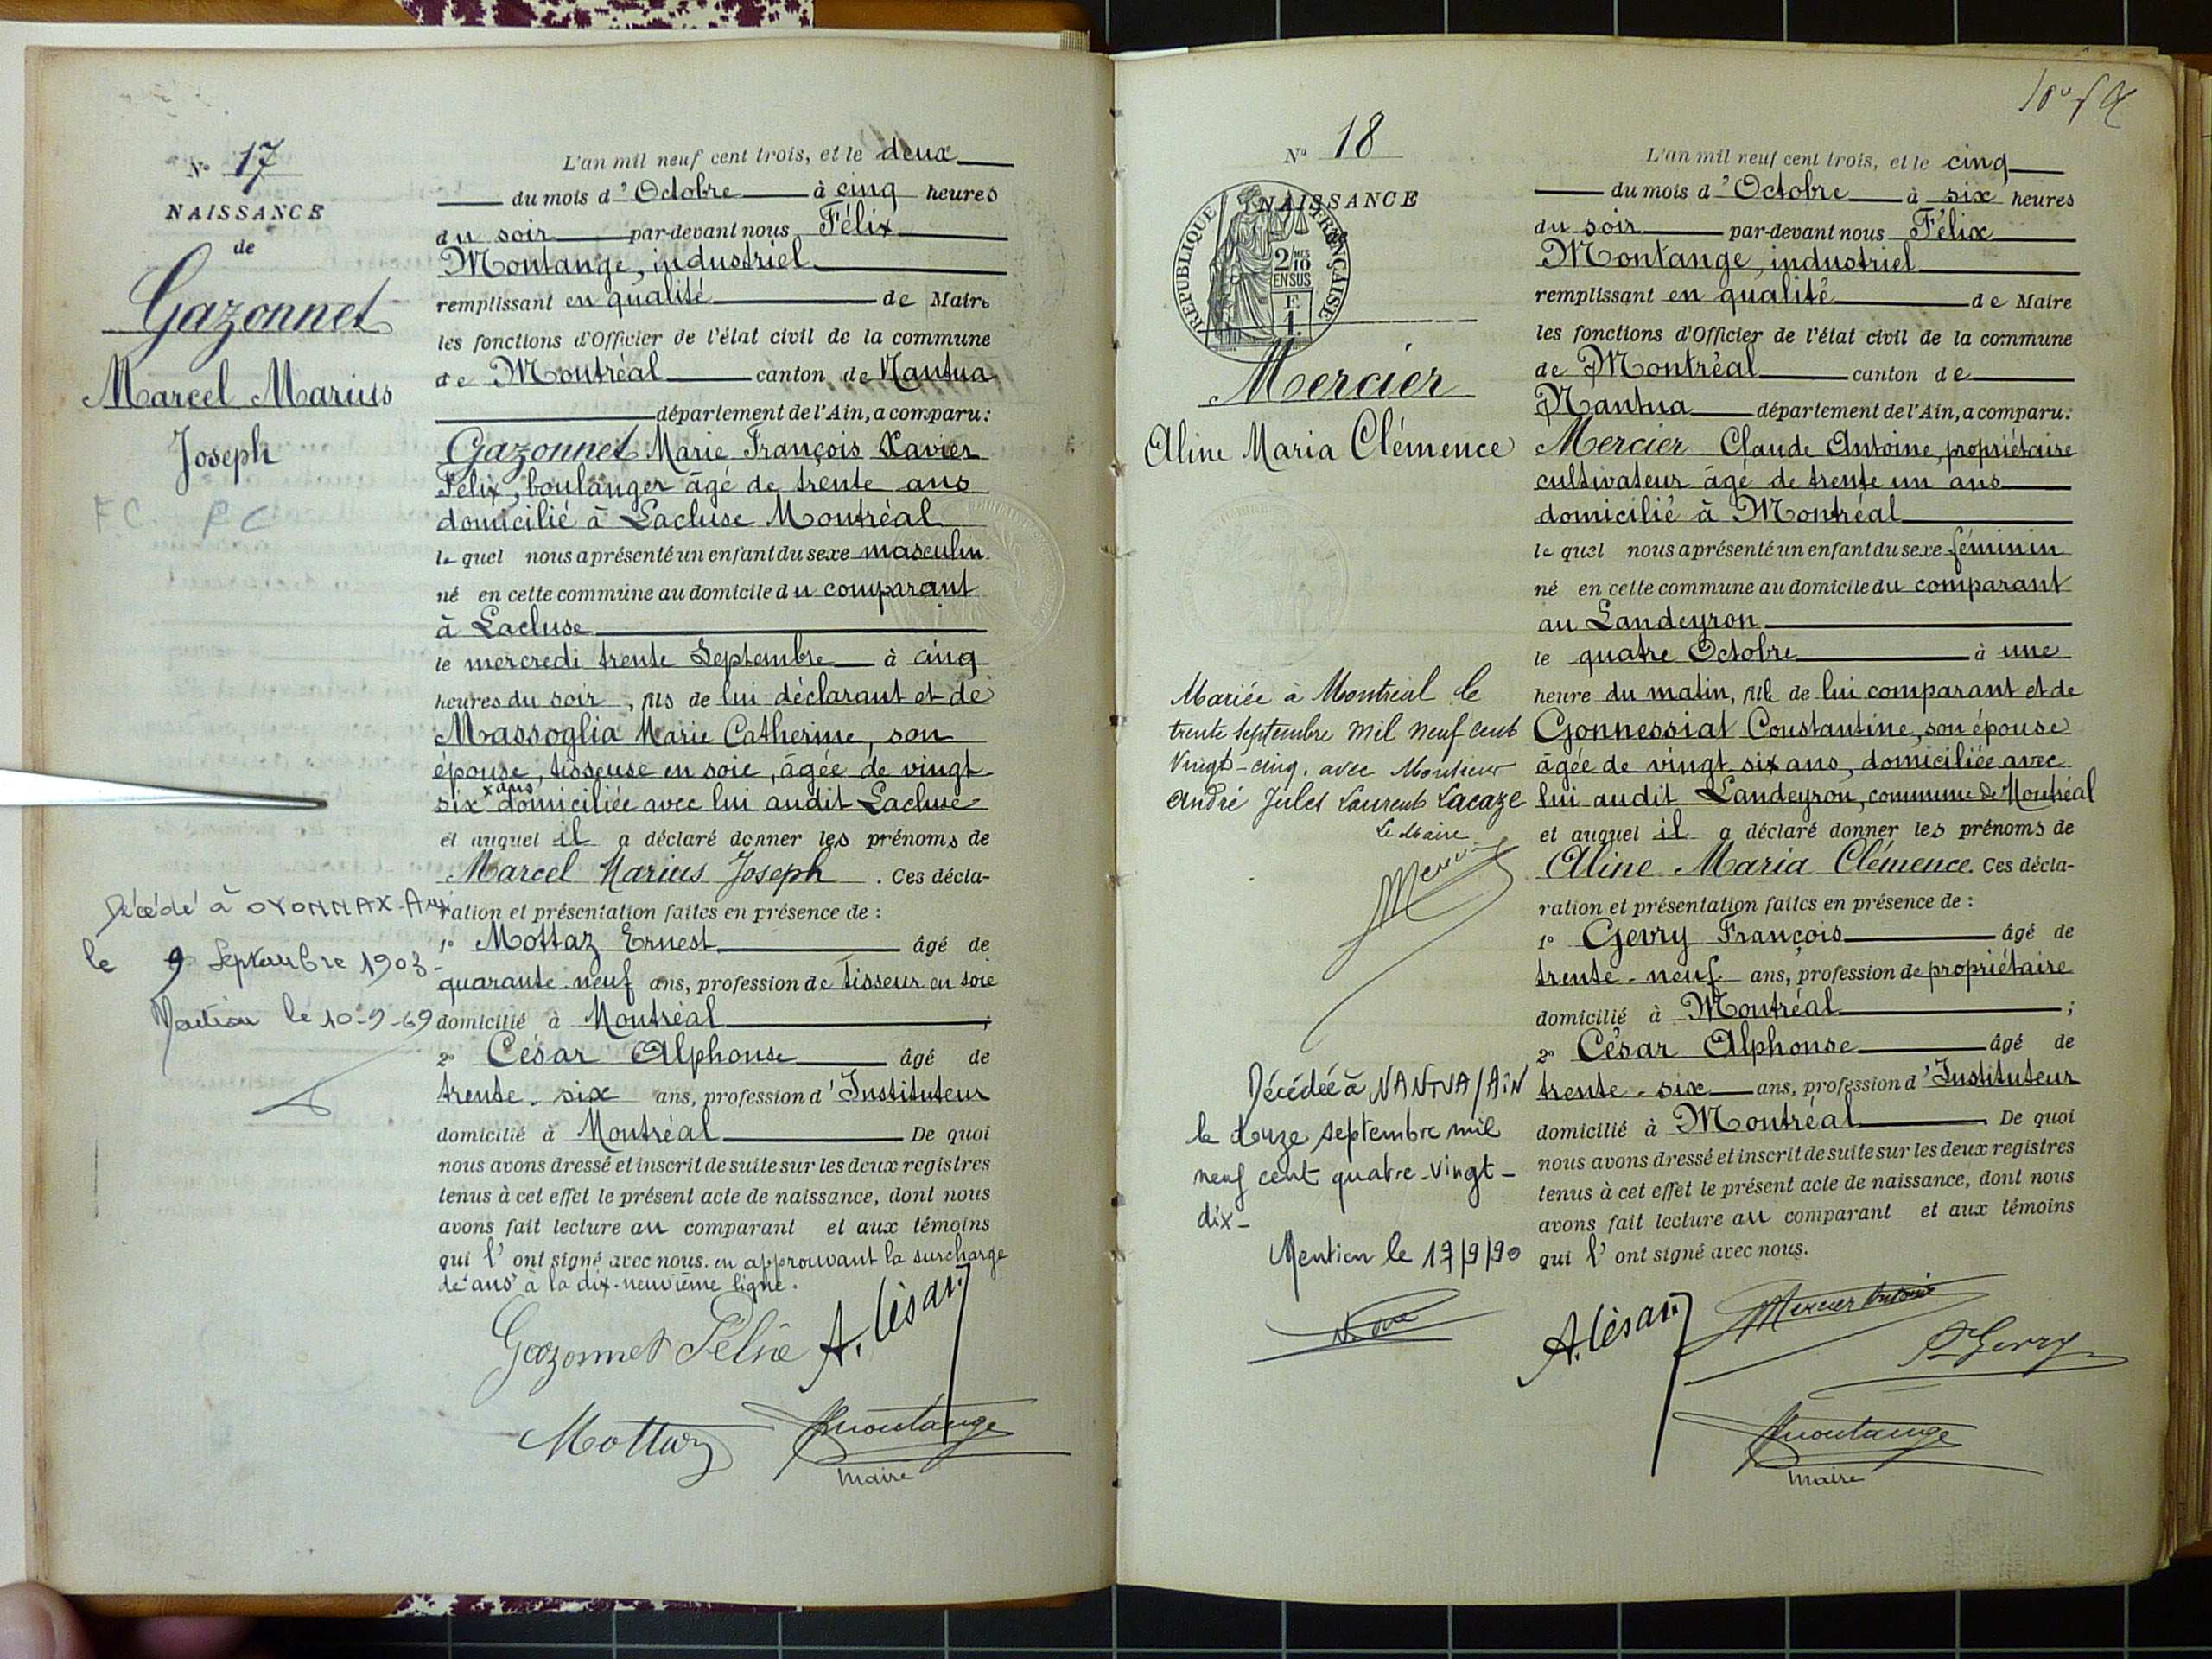 N° 17
NAISSANCE
de
Gazonnet
Marcel Marius
Joseph
F.C. F C
Décédé à OYONNAX-Ain
le 9 Septembre 1903
Mention le 10-9-69
L'an mil neuf cent trois, et le deux
du mois d'Octobre à cinq heures
du soir par-devant nous Félix
Montange, industriel
remplissant en qualité de Maire
les fonctions d'Officier de l'état civil de la commune
de Montréal canton de Nantua
département de l'Ain, a comparu:
Gazonnet Marie François Xavier
Félix, boulanger âgé de trente ans
domicilié à Lacluse Montréal
le quel nous a présenté un enfant du sexe masculin
né en cette commune au domicile du comparant
à Lacluse
le mercredi trente Septembre à cinq
heures du soir, fils de lui déclarant et de
Massoglia Marie Catherine, son
épouse, tisseuse en soie, âgée de vingt
six x ans domiciliée avec lui audit Lacluse
et auquel il a déclaré donner les prénoms de
Marcel Marius Joseph. Ces décla-
ration et présentation faites en présence de :
1° Mottaz Ernest âgé de
quarante-neuf ans, profession de Tisseur en soie
domicilié à Montréal ;
2° César Alphonse âgé de
trente-six ans, profession d'Instituteur
domicilié à Montréal De quoi
nous avons dressé et inscrit de suite sur les deux registres
tenus à cet effet le présent acte de naissance, dont nous
avons fait lecture au comparant et aux témoins
qui l'ont signé avec nous. en approuvant la surcharge
de "ans" à la dix-neuvième ligne.
Gazonnet Félix A. César
Mottaz Montange
Maire
N° 18
NAISSANCE
de
RÉPUBLIQUE FRANÇAISE
2/10 MES
EN SUS
F
1
Mercier
Aline Maria Clémence
Mariée à Montréal le
trente Septembre mil neuf cent
vingt-cinq, avec Monsieur
André Jules Laurent Lacaze
Le Maire
Décédée à NANTUA/AIN
le douze septembre mil
neuf cent quatre-vingt-
dix-
Mention le 17/9/90
L'an mil neuf cent trois, et le cinq
du mois d'Octobre à six heures
du soir par-devant nous Félix
Montange, industriel
remplissant en qualité de Maire
les fonctions d'Officier de l'état civil de la commune
de Montréal canton de
Nantua département de l'Ain, a comparu:
Mercier Claude Antoine, propriétaire
cultivateur âgé de trente un ans
domicilié à Montréal
le quel nous a présenté un enfant du sexe féminin
né en cette commune au domicile du comparant
au Landeyron
le quatre Octobre à une
heure du matin, fille de lui comparant et de
Gonnessiat Constantine, son épouse
âgée de vingt six ans, domiciliée avec
lui audit Landeyron, commune de Montréal
et auquel il a déclaré donner les prénoms de
Aline Maria Clémence. Ces décla-
ration et présentation faites en présence de :
1° Gevry François âgé de
trente-neuf ans, profession de propriétaire
domicilié à Montréal ;
2° César Alphonse âgé de
trente-six ans, profession d'Instituteur
domicilié à Montréal De quoi
nous avons dressé et inscrit de suite sur les deux registres
tenus à cet effet le présent acte de naissance, dont nous
avons fait lecture au comparant et aux témoins
qui l'ont signé avec nous.
A. César Mercier Antoine
F. Gevry
Montange
Maire